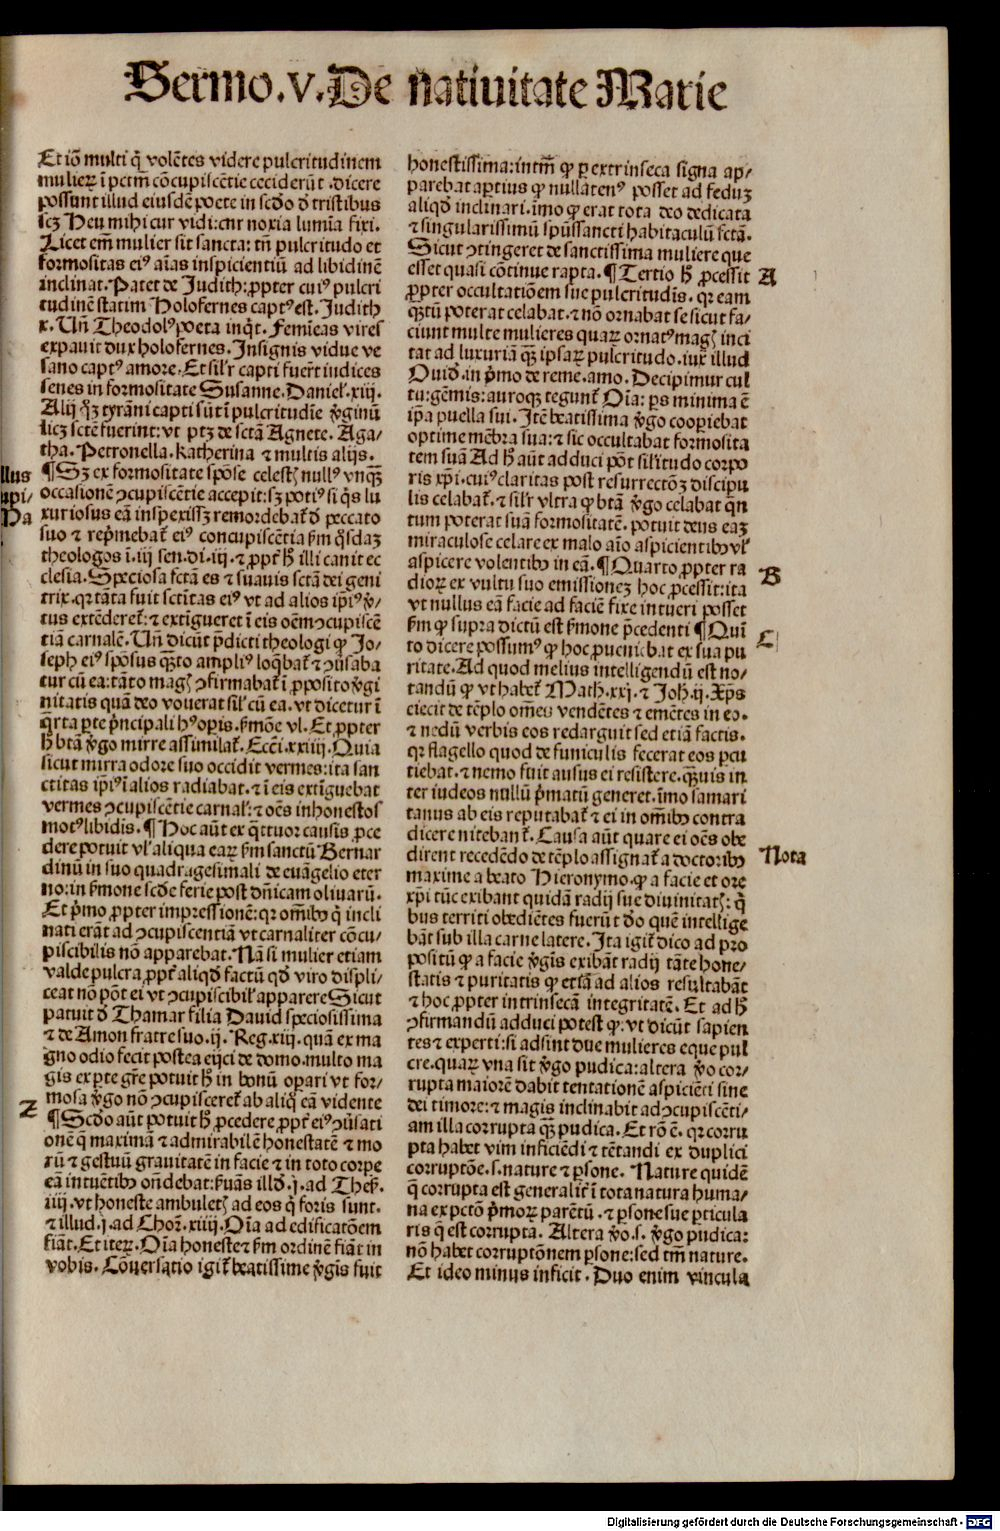 Sermo.v. De natiuitate Marie
Et iõ multi q̃ volẽtes videre pulcritudinem
mulieꝝ ĩ pctm̃ cõcupiscẽtie ceciderũt .dicere
possunt illud eiusdẽ poete in scd̃o đ tristibus
scꝫ Heu mihi cur vidi: cur noxia lumĩa fixi.
Licet em̃ mulier sit sancta: tñ pulcritudo et
formositas eiꝰ aĩas inspicientiũ ad libidinẽ
inclinat. Patet de Judith: ꝓpter cuiꝰ pulcri
tudinẽ statim Holofernes captꝰ est. Judith
x. Uñ Theodolꝰ poeta inq̃t. Femĩeas vires
expauit dux holofernes. Insignis vidue ve
sano captꝰ amore. Et sil'r capti fuert̃ iudices
senes in formositate Susanne. Daniel'.xiij.
Alij q̃ꝫ tyrãni capti sũt ĩ pulcritudĩe v̾ginũ
licꝫ sctẽ fuerint: vt ptꝫ de sctã Agnete. Aga-
tha. Petronella. Katherina ⁊ multis alijs.
¶ Sꝫ ex formositate spõse celestꝭ nullꝰ vnq̃ꝫ
occasionẽ ꝯcupiscẽtie accepit: sꝫ potiꝰ si q̃s lu
xuriosus eã inspexissꝫ remordebat̃ đ peccato
suo ⁊ rep̃mebat̃ eiꝰ concupiscẽtia ẜm q̃sdaꝫ
theologos ĩ.iij sen.di.iij. ⁊ ꝓpt̃ h̃ illi canit ec
clesia. Speciosa fctã es ⁊ suauis sctã dei geni
trix. qꝛ tãta fuit sctĩtas eiꝰ vt ad alios ip̃iꝰ v̾-
tus extẽderet̃: ⁊ extĩgueret ĩ eis oẽm ꝯcupiscẽ
tiã carnalẽ. Uñ dicũt p̃dicti theologi ꝙ Jo-
seph eiꝰ spõsus q̃ꝫto ampliꝰ loq̃bat̃ ⁊ ꝯũsaba
tur cũ ea: tãto magꝭ ꝯfirmabat̃ ĩ ꝓposito v̾gi
nitatis quã deo vouerat sil' cũ ea. vt dicetur ĩ
q̃rta ꝑte p̃ncipali hꝰ opis. ẜmõe vl. Et ꝓpter
h̃ btã v̾go mirre assimilat̃. Ecc̃i.xxiiij. Quia
sicut mirra odore suo occidit vermes: ita san
ctitas ip̃iꝰ ĩ alios radiabat. ⁊ ĩ eis extĩguebat
vermes ꝯcupiscẽtie carnal': ⁊ oẽs inhonestos
motꝰ libidis. ¶ Hoc aũt ex q̃ttuor causis ꝓce
dere potuit vl' aliqua eaꝝ ẜm sanctũ Bernar
dinũ in suo quadragesimali de euãgelio eter
no: in ẜmone scd̃e ferie post dñicam oliuarũ.
Et p̃mo ꝓpter impressionẽ: qꝛ om̃ibꝰ q̃ incli
nati erãt ad ꝯcupiscentiã vt carnaliter cõcu-
piscibilis nõ apparebat. Nã si mulier etiam
valde pulcra ꝓpt̃ aliqđ factũ qđ viro displi-
ceat nõ põt ei vt ꝯcupiscibil' apparere Sicut
patuit đ Thamar filia Dauid speciosissima
⁊ de Amon fratre suo .ij. Reg.xiij. quã ex ma
gno odio fecit postea eijci de domo. multo ma
gis ex ꝑte gr̃e potuit h̃ in bonũ opari vt for-
mosa v̾go nõ ꝯcupisceret̃ ab aliq̃ eã vidente
¶ Scd̃o aũt potuit h̃ ꝓcedere ꝓpt̃ eiꝰ ꝯũsati
onẽ q̃ maximã ⁊ admirabilẽ honestatẽ ⁊ mo
rũ ⁊ gestuũ grauitatẽ in facie ⁊ in toto corpe
eã intuẽtibꝰ oñdebat: ẜuãs illđ .j. ad Thes̃.
iiij. vt honeste ambuletꝭ ad eos q̃ foris sunt.
⁊ illud .j. ad Choꝝ. xiiij. Oĩa ad edificatõem
fiãt. Et iteꝝ. Oĩa honeste ⁊ ẜm ordinẽ fiãt in
vobis. Cõuersatio igit̃ beatissime v̾gĩs fuit
llus
upi-
Da
Z
honestissima: intm̃ ꝙ ꝑ extrinseca signa ap-
parebat aꝑtius ꝙ nullatenꝰ posset ad feduꝫ
aliqđ inclinari. ĩmo ꝙ erat tota deo dedicata
⁊ singularissimũ spũssancti habitaculũ fctã.
Sicut ꝯtingeret de sanctissima muliere que
esset quasi cõtinue rapta. ¶ Tertio h̃ ꝓcessit
ꝓpter occultatiõem sue pulcritudĩs. qꝛ eam
q̃ꝫtũ poterat celabat. ⁊ nõ ornabat se sicut fa-
ciunt multe mulieres quaꝝ ornatꝰ magꝭ inci
tat ad luxuriã q̃ꝫ ipsaꝝ pulcritudo. iuꝝ illud
Ouiđ. in p̃mo de reme.amo. Decipimur cul
tu: gẽmis: auroqꝫ tegunt̃ Oĩa: ꝑs minima ẽ
ip̃a puella sui. Itẽ beatissima v̾go coopiebat
optime mẽbra sua: ⁊ sic occultabat formosita
tem suã Ad h̃ aũt adduci põt sil'itudo corpo
ris xp̃i. cuiꝰ claritas post resurrectõꝫ discipu
lis celabat̃. ⁊ sil'r vltra ꝙ btã v̾go celabat q̃n
tum poterat suã formositatẽ. potuit deus eaꝫ
miraculose celare ex malo aĩo aspicientibꝰ vl'
aspicere volentibꝰ in eã. ¶ Quarto ꝓpter ra
dioꝝ ex vultu suo emissioneꝫ hoc ꝓcessit: ita
vt nullus eã facie ad faciẽ fixe intueri posset
ẜm ꝙ supra dictũ est ẜmone p̃cedenti ¶ Quĩ
to dicere possumꝰ ꝙ hoc ꝓueniebat ex sua pu
ritate. Ad quod melius intelligendũ est no-
tandũ ꝙ vt habet̃ Math.xxj. ⁊ Joh̃.ij. Xp̃s
eiecit de tẽplo om̃es vendẽtes ⁊ emẽtes in eo.
⁊ nedũ verbis eos redarguit sed etiã factis.
qꝛ flagello quod de funiculis fecerat eos pcu
tiebat. ⁊ nemo fuit ausus ei resistere. q̃ꝫuis in
ter iudeos nullũ p̃matũ generet. ĩmo samari
tanus ab eis reputabat̃ ⁊ ei in om̃ibꝰ contra
dicere nitebant̃. Causa aũt quare ei oẽs obe
dirent recedẽdo de tẽplo assignat̃ a doctoribꝰ
maxime a beato Hieronymo. ꝙ a facie et ore
xp̃i tũc exibant quidã radij sue diuinitatꝭ: q̃
bus territi obediẽtes fuerũt đo quẽ intellige
bãt sub illa carne latere. Ita igit̃ dico ad pro
positũ ꝙ a facie v̾gĩs exibãt radij tãte hone-
statis ⁊ puritatis ꝙ etiã ad alios resultabãt
⁊ hoc ꝓpter intrinsecã integritatẽ. Et ad h̃
ꝯfirmandũ adduci potest ꝙ: vt dicũt sapien
tes ⁊ experti: si adsint due mulieres eque pul
cre. quaꝝ vna sit v̾go pudica: altera v̾o cor-
rupta maiorẽ dabit tentationẽ aspiciẽti sine
dei timore: ⁊ magis inclinabit ad ꝯcupiscẽti-
am illa corrupta q̃ꝫ pudica. Et rõ ẽ. qꝛ corru
pta habet vim inficiẽdi ⁊ tẽtandi ex duplici
corruptõe.s.nature ⁊ ꝑsone. Nature quidẽ
q̃ corrupta est generalit̃ ĩ tota natura huma-
na ex pctõ p̃moꝝ parẽtũ. ⁊ ꝑsone sue ꝑticula
ris q̃ est corrupta. Altera v̾o.s. v̾go pudica:
nõ habet corruptõnem ꝑsone: sed tm̃ nature.
Et ideo minus inficit. Duo enim vincula
A
B
C
Nota
Digitalisierung gefördert durch die Deutsche Forschungsgemeinschaft - DFG